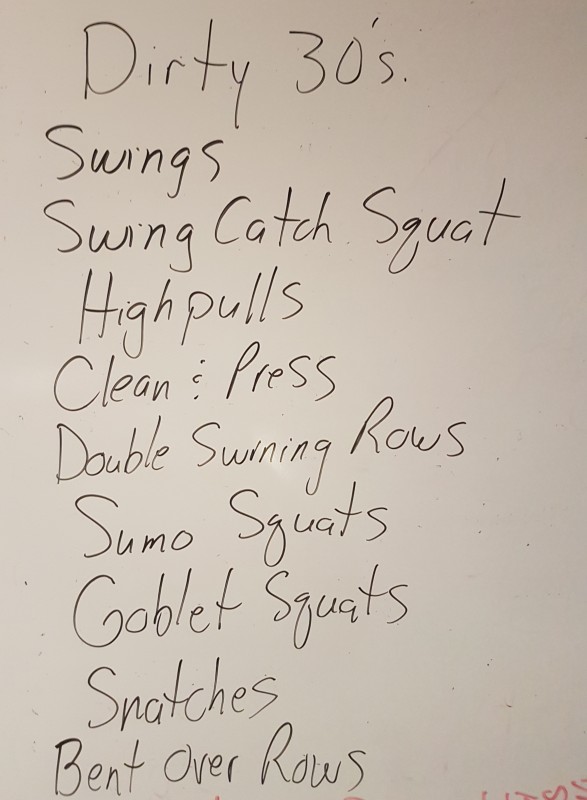 Dirty 30's.
Swings
Swing Catch Squat
High pulls
Clean & Press
Double Swining Rows
Sumo Squats
Goblet Squats
Snatches
Bent Over Rows